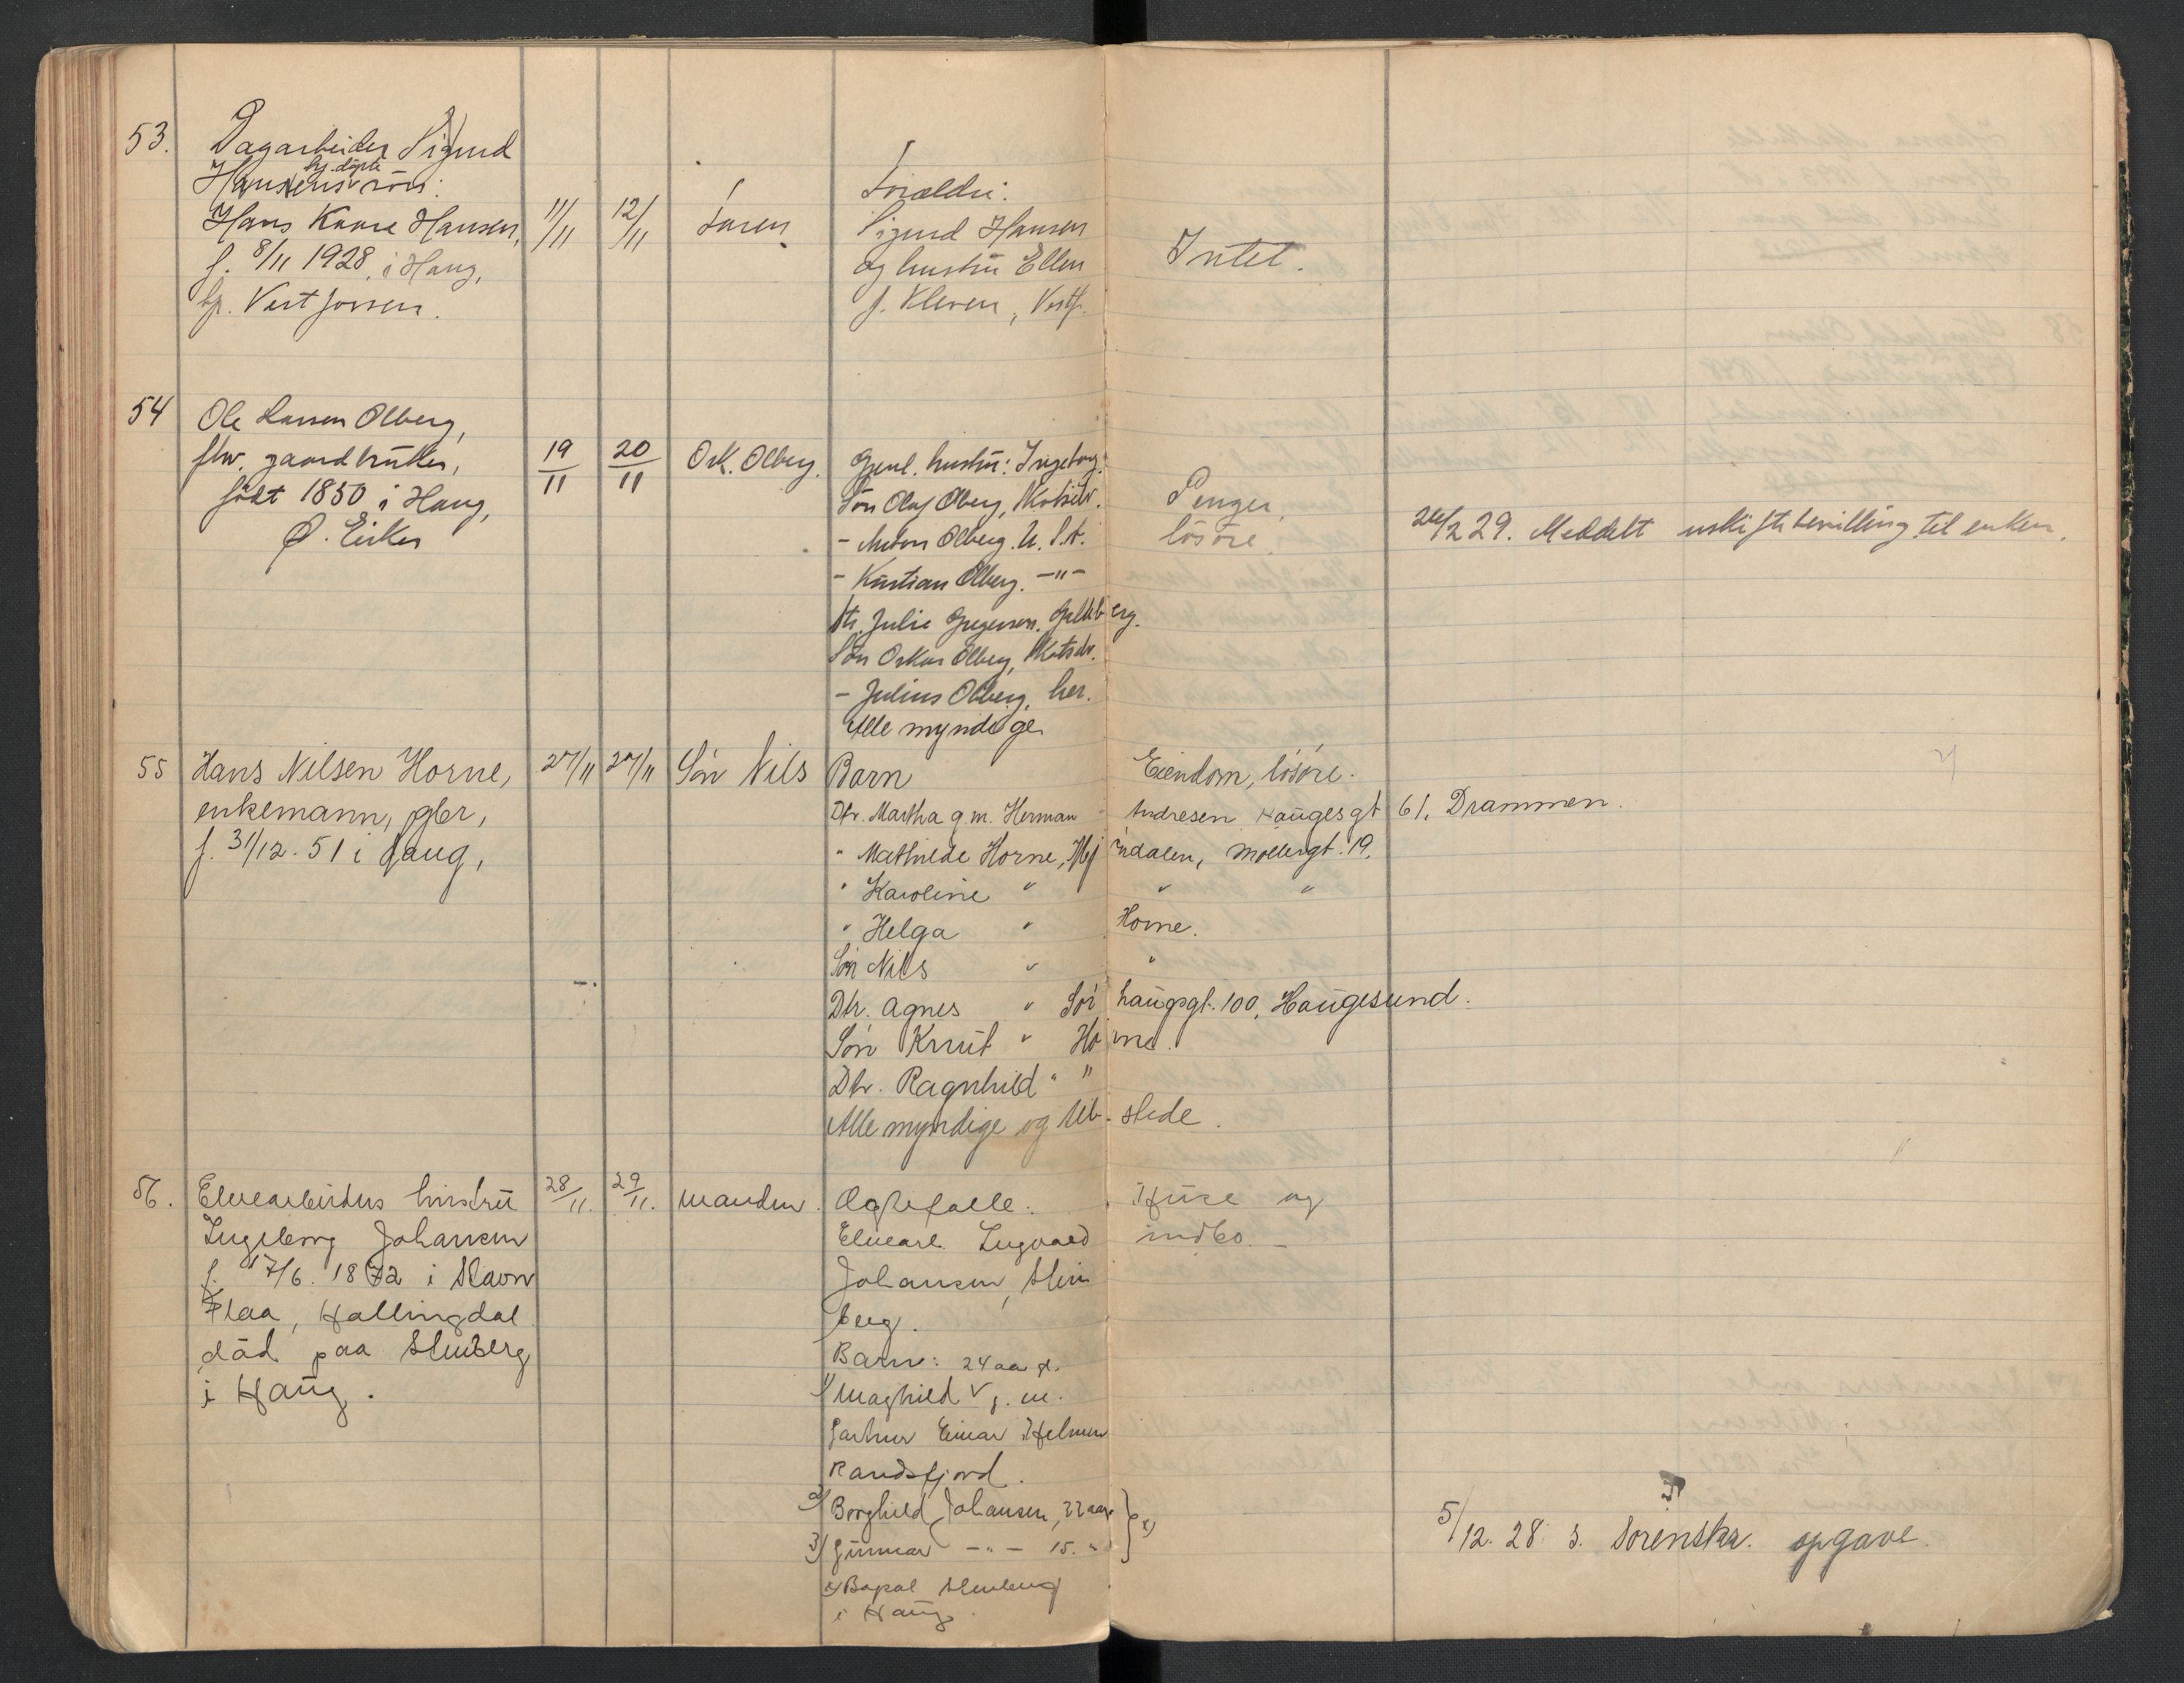 53.
Dagarbeider Sigurd
hj. døpte
Hansens søn:
Hans Kaare Hansen,
f. 8/11 1928 i Haug,
bp. Vestfossen.
11/11
12/11
Faren
Forældre:
Sigurd Hansen
og hustru Ellen
f. Kleven, Vestf.
Intet.
54
Ole Larsen Olberg,
fhv. gaardbruker,
født 1850 i Haug,
Ø. Eiker
19/11
20/11
Osk. Olberg.
Gjenl. hustru: Ingeborg.
Søn Olaf Olberg, Skotselv.
- Anton Olberg. U.S.A.
- Kristian Olberg. -"-
Dtr. Julie Gregersen,
Søn Oskar Olberg, Skotselv.
- Julius Olberg, her.
Alle myndige
Penger,
løsøre.
26/2 29. Meddelt uskiftebevilling til enken.
55
Hans Nilsen Horne,
enkemann, gbr,
f. 31/12. 51 i Haug,
27/11
27/11
Søn Nils
Barn
Eiendom, løsøre.
Dtr. Martha g.m. Herman Andresen Haugesgt 61, Drammen.
" Mathilde Horne, Mjøndalen, Møllergt. 19.
" Karoline " " "
" Helga " Horne.
Søn Nils " "
Dtr. Agnes " Sørhaugsgt. 100, Haugesund.
Søn Knut " Horne.
Dtr. Ragnhild " "
Alle myndige og tilstede.
56.
Elvearbeiders hustru
Ingeborg Johansen
f. 17/6. 1872 i Stavn
Flaa, Hallingdal
død paa Stenberg
i Haug.
28/11.
29/11.
manden.
Ægtefælle:
Elvearb. Ingvald
Johansen, Sten
berg.
Barn: 24 aar gl.
1/ Maghild v g. m.
Gartner Einar Helmen
Randsfjord.
2/ Borghild Johansen, 22 aar } x)
3/ Gunnar -"- 15. "
x) Bopæl Stenberg
i Haug.
Huse og
indbo.
5/12. 28. s. Sorenskr. opgave.